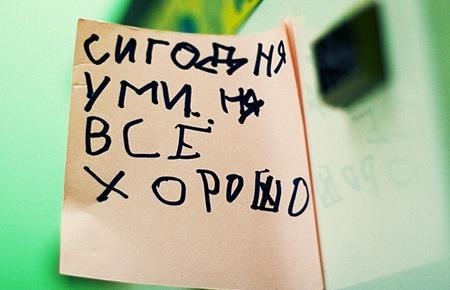 СИГОДНЯ
УМИ НЯ
ВСЁ
ХОРОШО